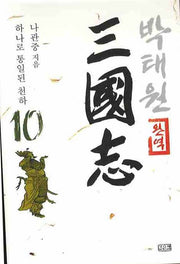 박태원
완역
三國志
나관중 지음
하나로 통일된 천하
10